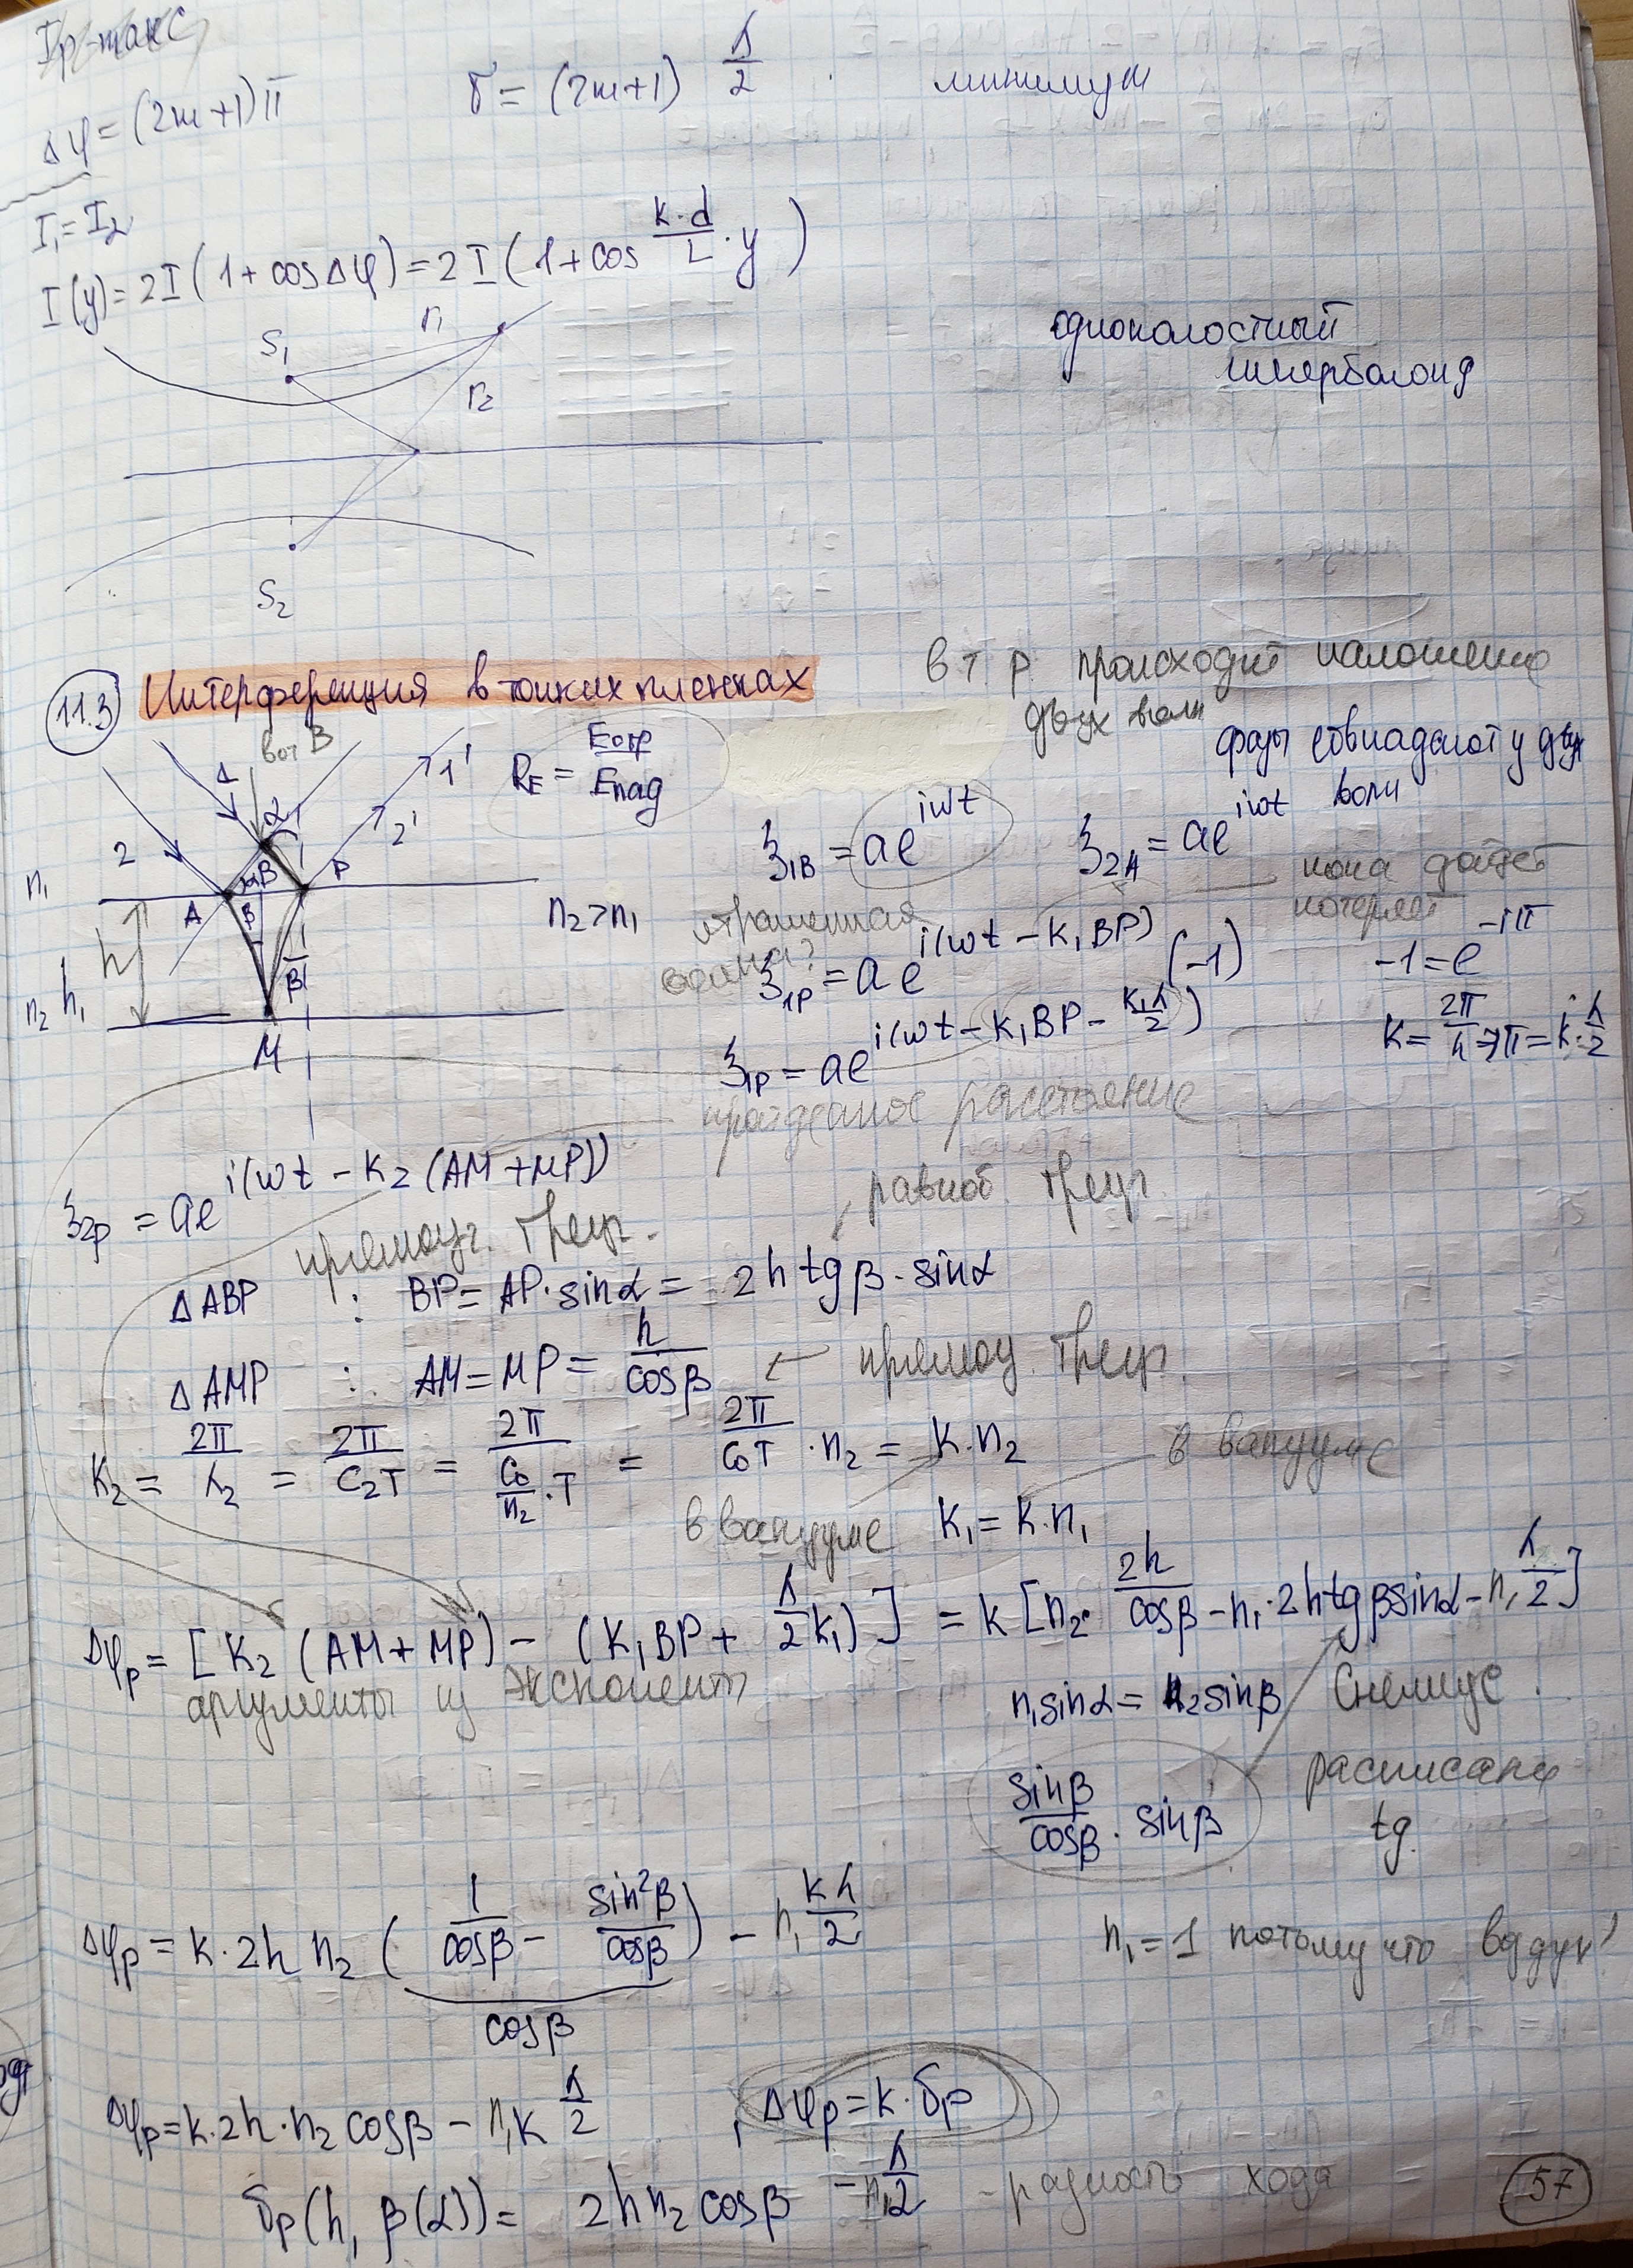 Iр-макс
Δφ = (2m+1)π δ = (2m+1) λ/2 . минимум
I₁ = I₂
I(y) = 2I(1+cosΔφ) = 2I(1+cos k·d/L · y)
S₁ r₁ r₂
однополостный
гиперболоид
S₂
11.3 Интерференция в тонких пленках
в т P происходит наложение
двух волн
вот B
1 2 α 1' 2' P A B β β M
n₁
n₂ h₁ h
n₂ > n₁
R_E = Eотр/Eпад
фазы совпадают у двух
волн
ξ₁B = ae^(iωt) ξ₂A = ae^(iωt)
пока дойдет
потеряет
отраженная
волна?
ξ₁P = ae^(i(ωt – k₁BP)) (-1) -1 = e^(-iπ)
ξ₁P = ae^(i(ωt – k₁BP – k₁λ/2)) k = 2π/λ ⇒ π = k·λ/2
пройденное расстояние
ξ₂P = ae^(i(ωt – k₂(AM+MP)))
равноб. треуг.
прямоуг. треуг.
Δ ABP : BP = AP·sinα = 2h tgβ · sinα
Δ AMP : AM = MP = h/cosβ ← прямоу. треуг.
k₂ = 2π/λ₂ = 2π/(c₂T) = 2π/((c₀/n₂)·T) = 2π/(c₀T) · n₂ = k·n₂ в вакууме
в вакууме k₁ = k·n₁
Δφp = [k₂(AM+MP) – (k₁BP + λ/2 k₁)] = k[n₂· 2h/cosβ – n₁·2htgβsinα – n₁ λ/2]
аргументы из экспонент
n₁sinα = n₂sinβ Снеллиус
sinβ/cosβ · sinβ расписали
tg.
Δφp = k·2h n₂ (1/cosβ – sin²β/cosβ) – n₁ kλ/2 n₁ = 1 потому что воздух!
cosβ
Δφp = k·2h·n₂ cosβ – n₁k λ/2 , Δφp = k·δp
δp(h, β(α)) = 2hn₂cosβ – n₁λ/2 - разность хода
57